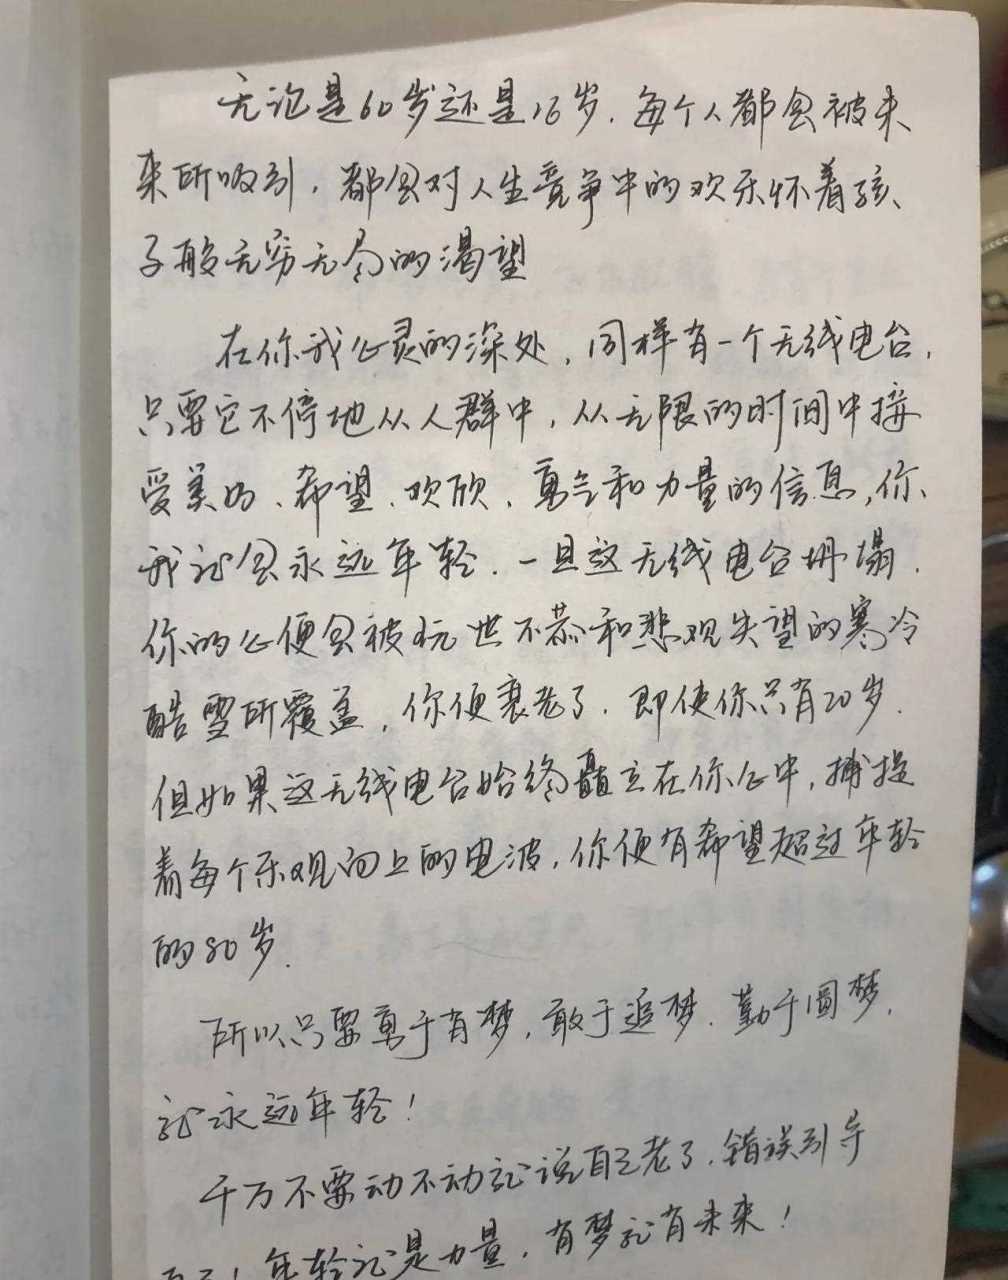 无论是60岁还是16岁.每个人都会被未
来所吸引,都会对人生竞争中的欢乐怀着孩、
子般无穷无尽的渴望
在你我心灵的深处,同样有一个无线电台,
只要它不停地从人群中,从无限的时间中接
受美好、希望、欢欣、勇气和力量的信息,你、
我就会永远年轻.一旦这无线电台坍塌.
你的心便会被玩世不恭和悲观失望的寒冷
酷雪所覆盖,你便衰老了.即使你只有20岁.
但如果这无线电台始终矗立在你心中,捕捉
着每个乐观向上的电波,你便有希望超过年轻
的80岁.
所以只要勇于有梦,敢于追梦.勤于圆梦,
就永远年轻!
千万不要动不动就说自己老了,错误引导
!年轻就是力量,有梦就有未来!